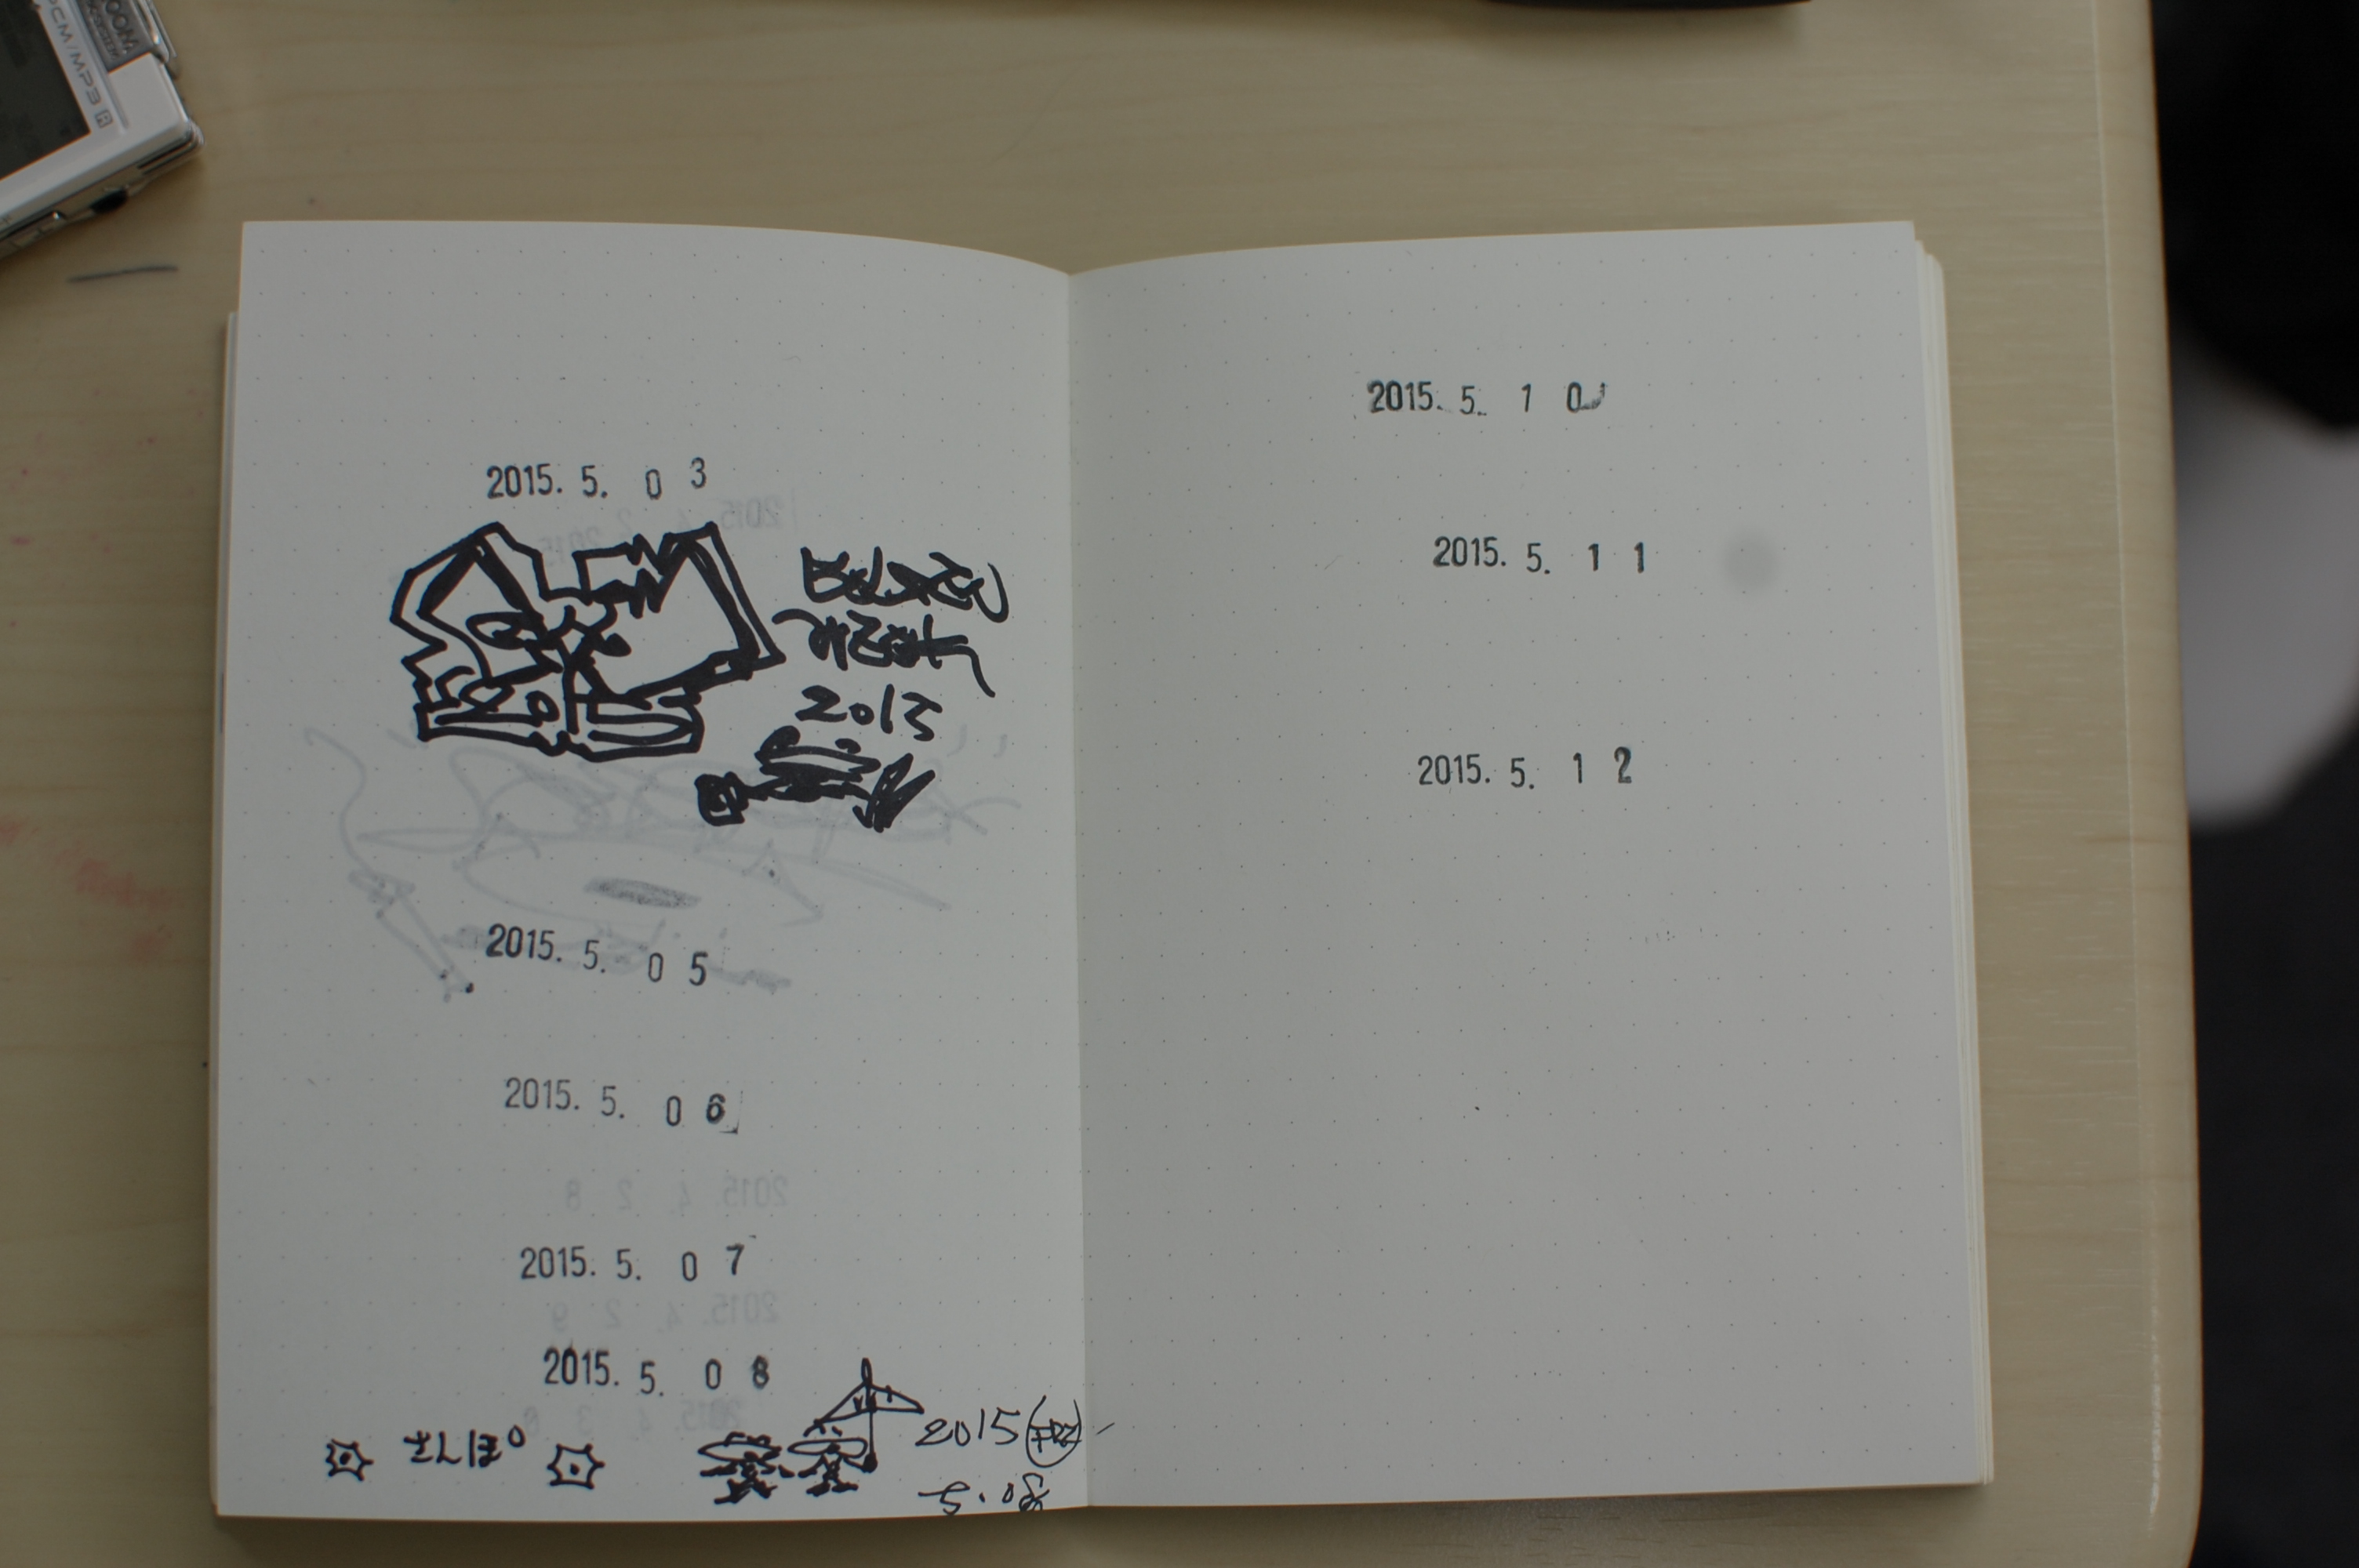 PCM/MP3
2015. 5. 0 3
2015
2015. 5. 0 5
2015. 5. 0 6
2015. 5. 0 7
2015. 5. 0 8
さんぽ
2015
5.08
2015. 5. 1 0
2015. 5. 1 1
2015. 5. 1 2